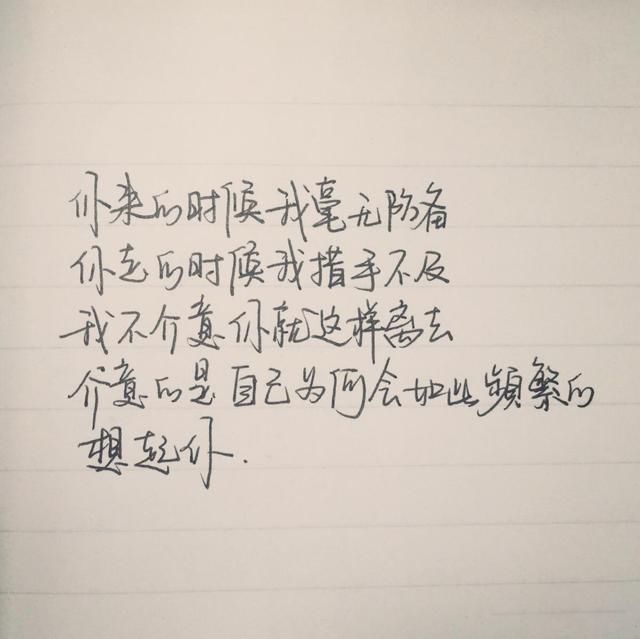 你来的时候我毫无防备
你走的时候我措手不及
我不介意你就这样离去
介意的是自己为何会如此频繁的
想起你.